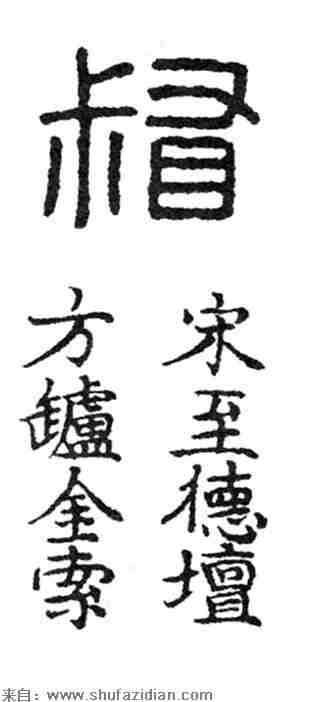 督
宋至德壇
方鑪金索
来自：www.shufazidian.com